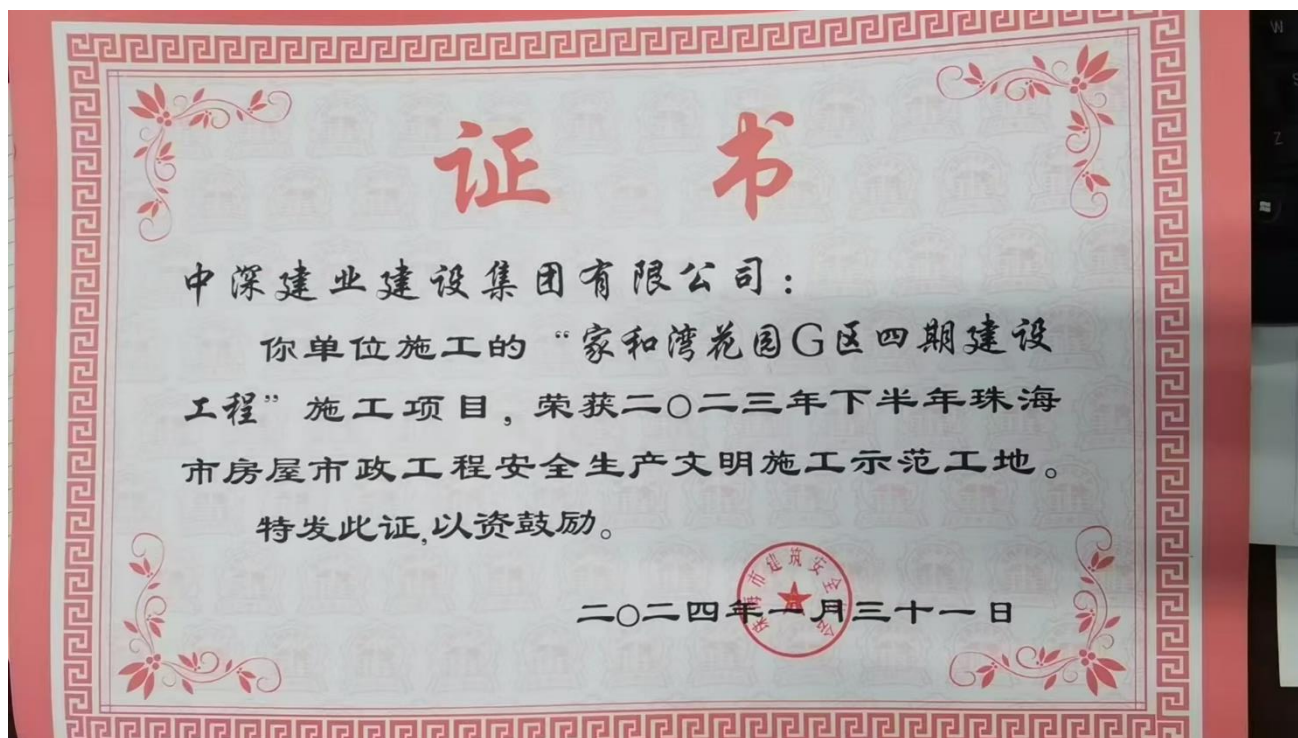 证书
中深建业建设集团有限公司：
你单位施工的“家和湾花园G区四期建设
工程”施工项目，荣获二〇二三年下半年珠海
市房屋市政工程安全生产文明施工示范工地。
特发此证,以资鼓励。
珠海市建筑安全协会
二〇二四年一月三十一日
W
S
Z